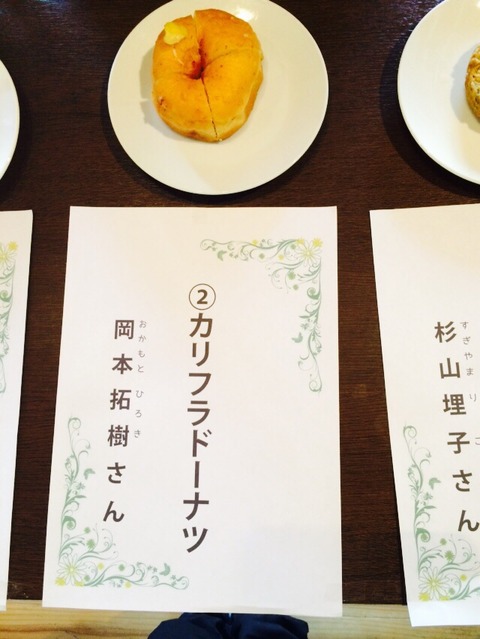 ②カリフラドーナツ
岡本拓樹さん
おかもと ひろき
杉山埋子さん
すぎやま りこ